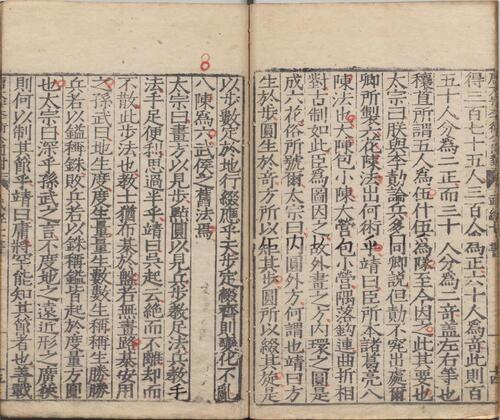 得三百七十五人三百人為正六十人為奇此則百
五十人分為二正而三十人分為二奇蓋左右等也
穰苴所謂五人為伍什伍為隊至今因之此其要也
太宗曰朕與李勣論兵多同卿說但勣不究出處爾
卿所製六花陳法出何術乎靖曰臣所本諸葛亮八
陳法也大陳包小陳大營包小營隅落鈎連曲折相
對古制如此臣為圖因之故外畫之方内環之圓是
成六花俗所號爾太宗曰内圓外方何謂也靖曰方
生於步圓生於奇方所以矩其步圓所以綴其旋是
8
以步數定於地行綴應乎天步定綴齊則變化不亂
八陳為六武侯之舊法焉
太宗曰畫方以見步點圓以見兵步教足法兵教手
法手足便利思過半乎靖曰吳起云絶而不離却而
不散此步法也教士猶布棊於盤若無畫路棊安用
之孫武曰地生度度生量量生數數生稱稱生勝勝
兵若以鎰稱銖敗兵若以銖稱鎰皆起於度量方圓
也太宗曰深乎孫武之言不度地之遠近形之廣狹
則何以制其節乎靖曰庸將罕能知其節者也善戰